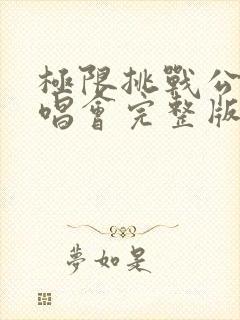 極限挑戰公
唱會完整版
夢如是